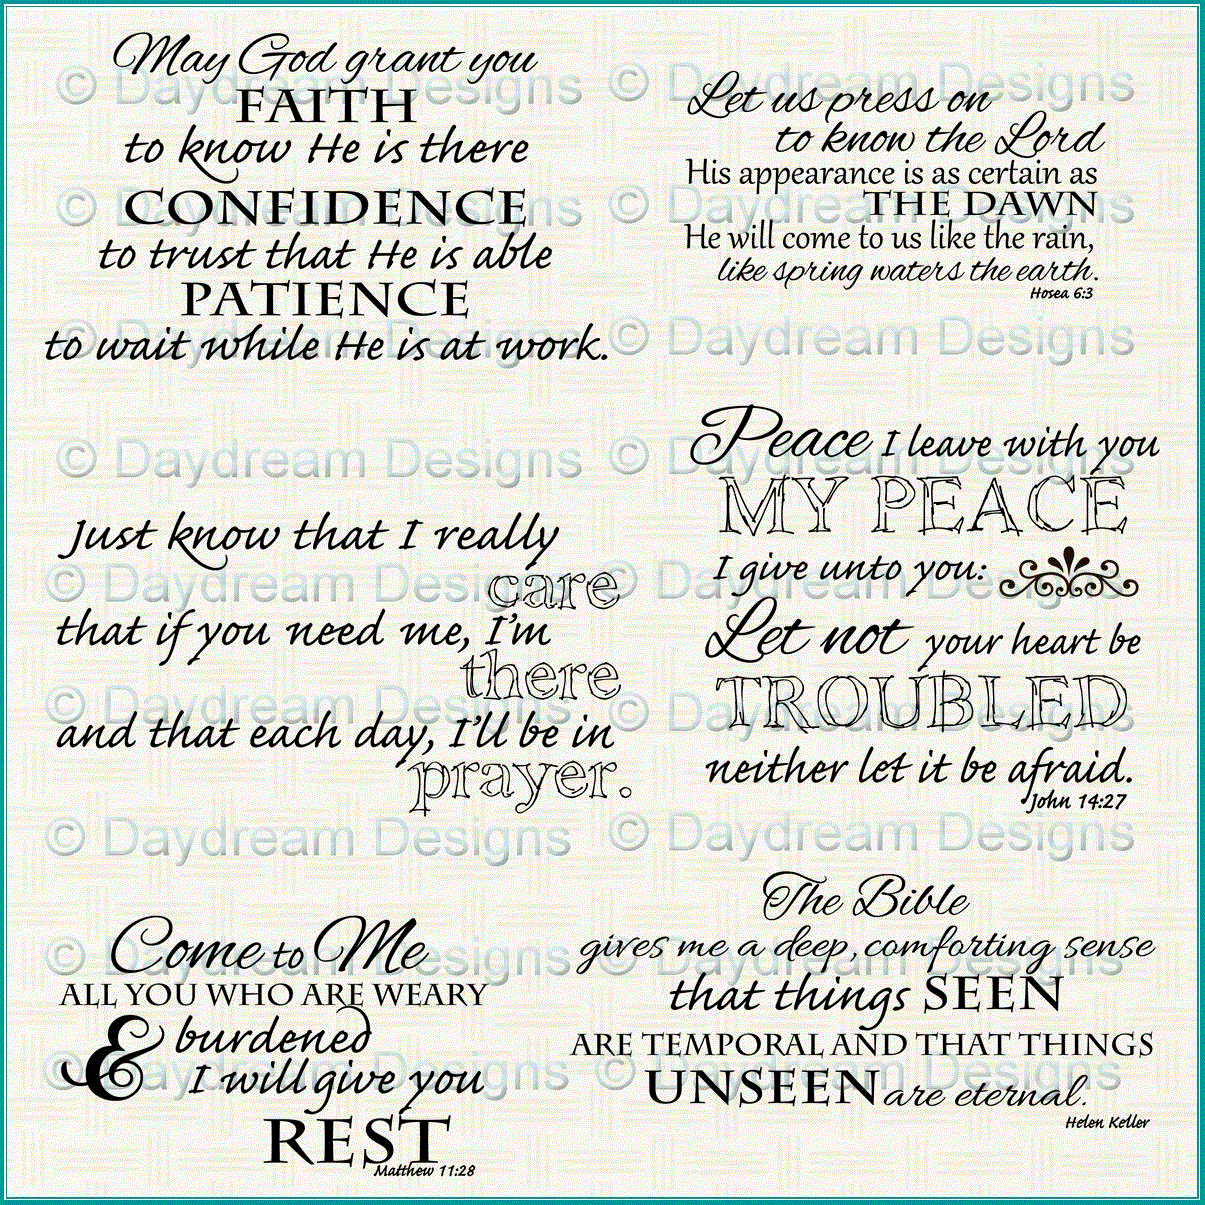 May God grant you
FAITH
to know He is there
CONFIDENCE
to trust that He is able
PATIENCE
to wait while He is at work.
Let us press on
to know the Lord
His appearance is as certain as
THE DAWN
He will come to us like the rain,
like spring waters the earth.
Hosea 6:3
Just know that I really
care
that if you need me, I'm
there
and that each day, I'll be in
prayer.
Peace I leave with you
MY PEACE
I give unto you:
Let not your heart be
TROUBLED
neither let it be afraid.
John 14:27
Come to Me
ALL YOU WHO ARE WEARY
& burdened
I will give you
REST
Matthew 11:28
The Bible
gives me a deep, comforting sense
that things SEEN
ARE TEMPORAL AND THAT THINGS
UNSEEN are eternal.
Helen Keller
© Daydream Designs © Daydream Designs
© Daydream Designs © Daydream Designs
© Daydream Designs © Daydream Designs
© Daydream Designs © Daydream Designs
© Daydream Designs © Daydream Designs
© Daydream Designs © Daydream Designs
© Daydream Designs © Daydream Designs
© Daydream Designs © Daydream Designs
© Daydream Designs © Daydream Designs